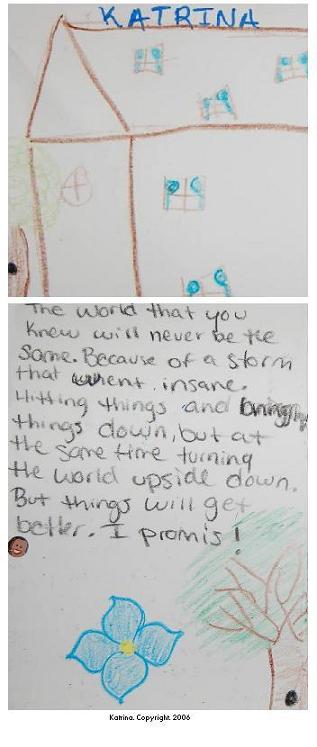 KATRINA
The world that you
knew will never be the
Same. Because of a storm
that whent insane.
Hitting things and bringing
things down, but at
the same time turning
the world upside down.
But things will get
better. I promis!
Katrina. Copyright 2006